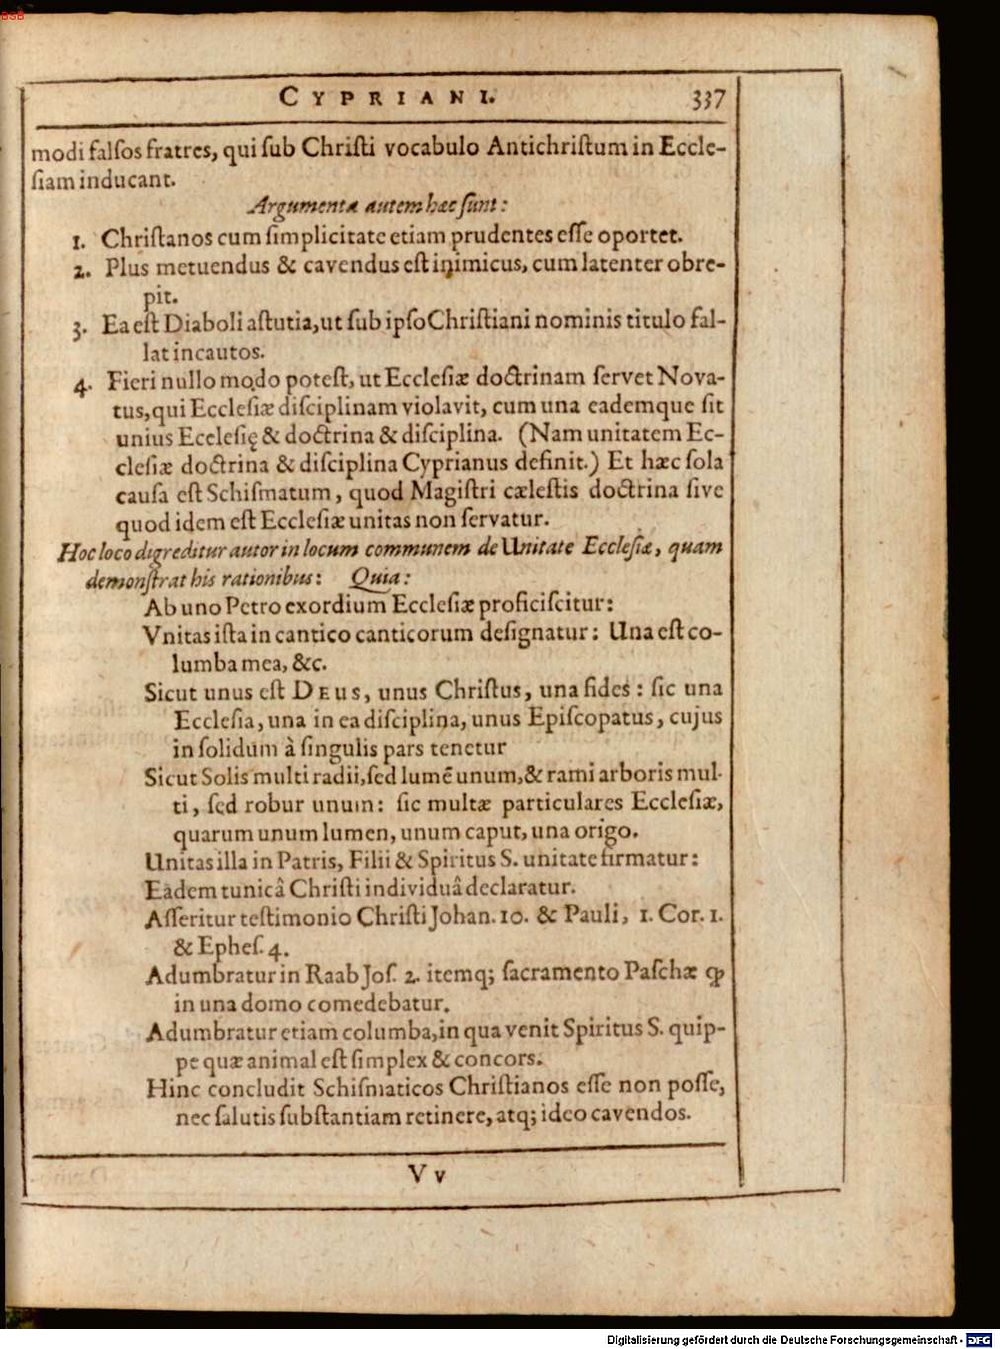 BSB
CYPRIANI. 337
modi falsos fratres, qui sub Christi vocabulo Antichristum in Eccle-
siam inducant.
Argumenta autem hæc sunt:
1. Christanos cum simplicitate etiam prudentes esse oportet.
2. Plus metuendus & cavendus est inimicus, cum latenter obre-
pit.
3. Ea est Diaboli astutia, ut sub ipso Christiani nominis titulo fal-
lat incautos.
4. Fieri nullo modo potest, ut Ecclesiæ doctrinam servet Nova-
tus, qui Ecclesiæ disciplinam violavit, cum una eademque sit
unius Ecclesię & doctrina & disciplina. (Nam unitatem Ec-
clesiæ doctrina & disciplina Cyprianus definit.) Et hæc sola
causa est Schismatum, quod Magistri cælestis doctrina sive
quod idem est Ecclesiæ unitas non servatur.
Hoc loco digreditur autor in locum communem de Unitate Ecclesiæ, quam
demonstrat his rationibus: Quia:
Ab uno Petro exordium Ecclesiæ proficiscitur:
Vnitas ista in cantico canticorum designatur: Una est co-
lumba mea, &c.
Sicut unus est DEUS, unus Christus, una fides: sic una
Ecclesia, una in ea disciplina, unus Episcopatus, cujus
in solidum à singulis pars tenetur
Sicut Solis multi radii, sed lumē unum, & rami arboris mul-
ti, sed robur unum: sic multæ particulares Ecclesiæ,
quarum unum lumen, unum caput, una origo.
Unitas illa in Patris, Filii & Spiritus S. unitate firmatur:
Eadem tunicâ Christi individuâ declaratur.
Asseritur testimonio Christi Johan. 10. & Pauli, 1. Cor. 1.
& Ephes. 4.
Adumbratur in Raab Jos. 2. itemq; sacramento Paschæ ꝙ
in una domo comedebatur.
Adumbratur etiam columba, in qua venit Spiritus S. quip-
pe quæ animal est simplex & concors.
Hinc concludit Schismaticos Christianos esse non posse,
nec salutis substantiam retinere, atq; ideo cavendos.
V v
Digitalisierung gefördert durch die Deutsche Forschungsgemeinschaft - DFG